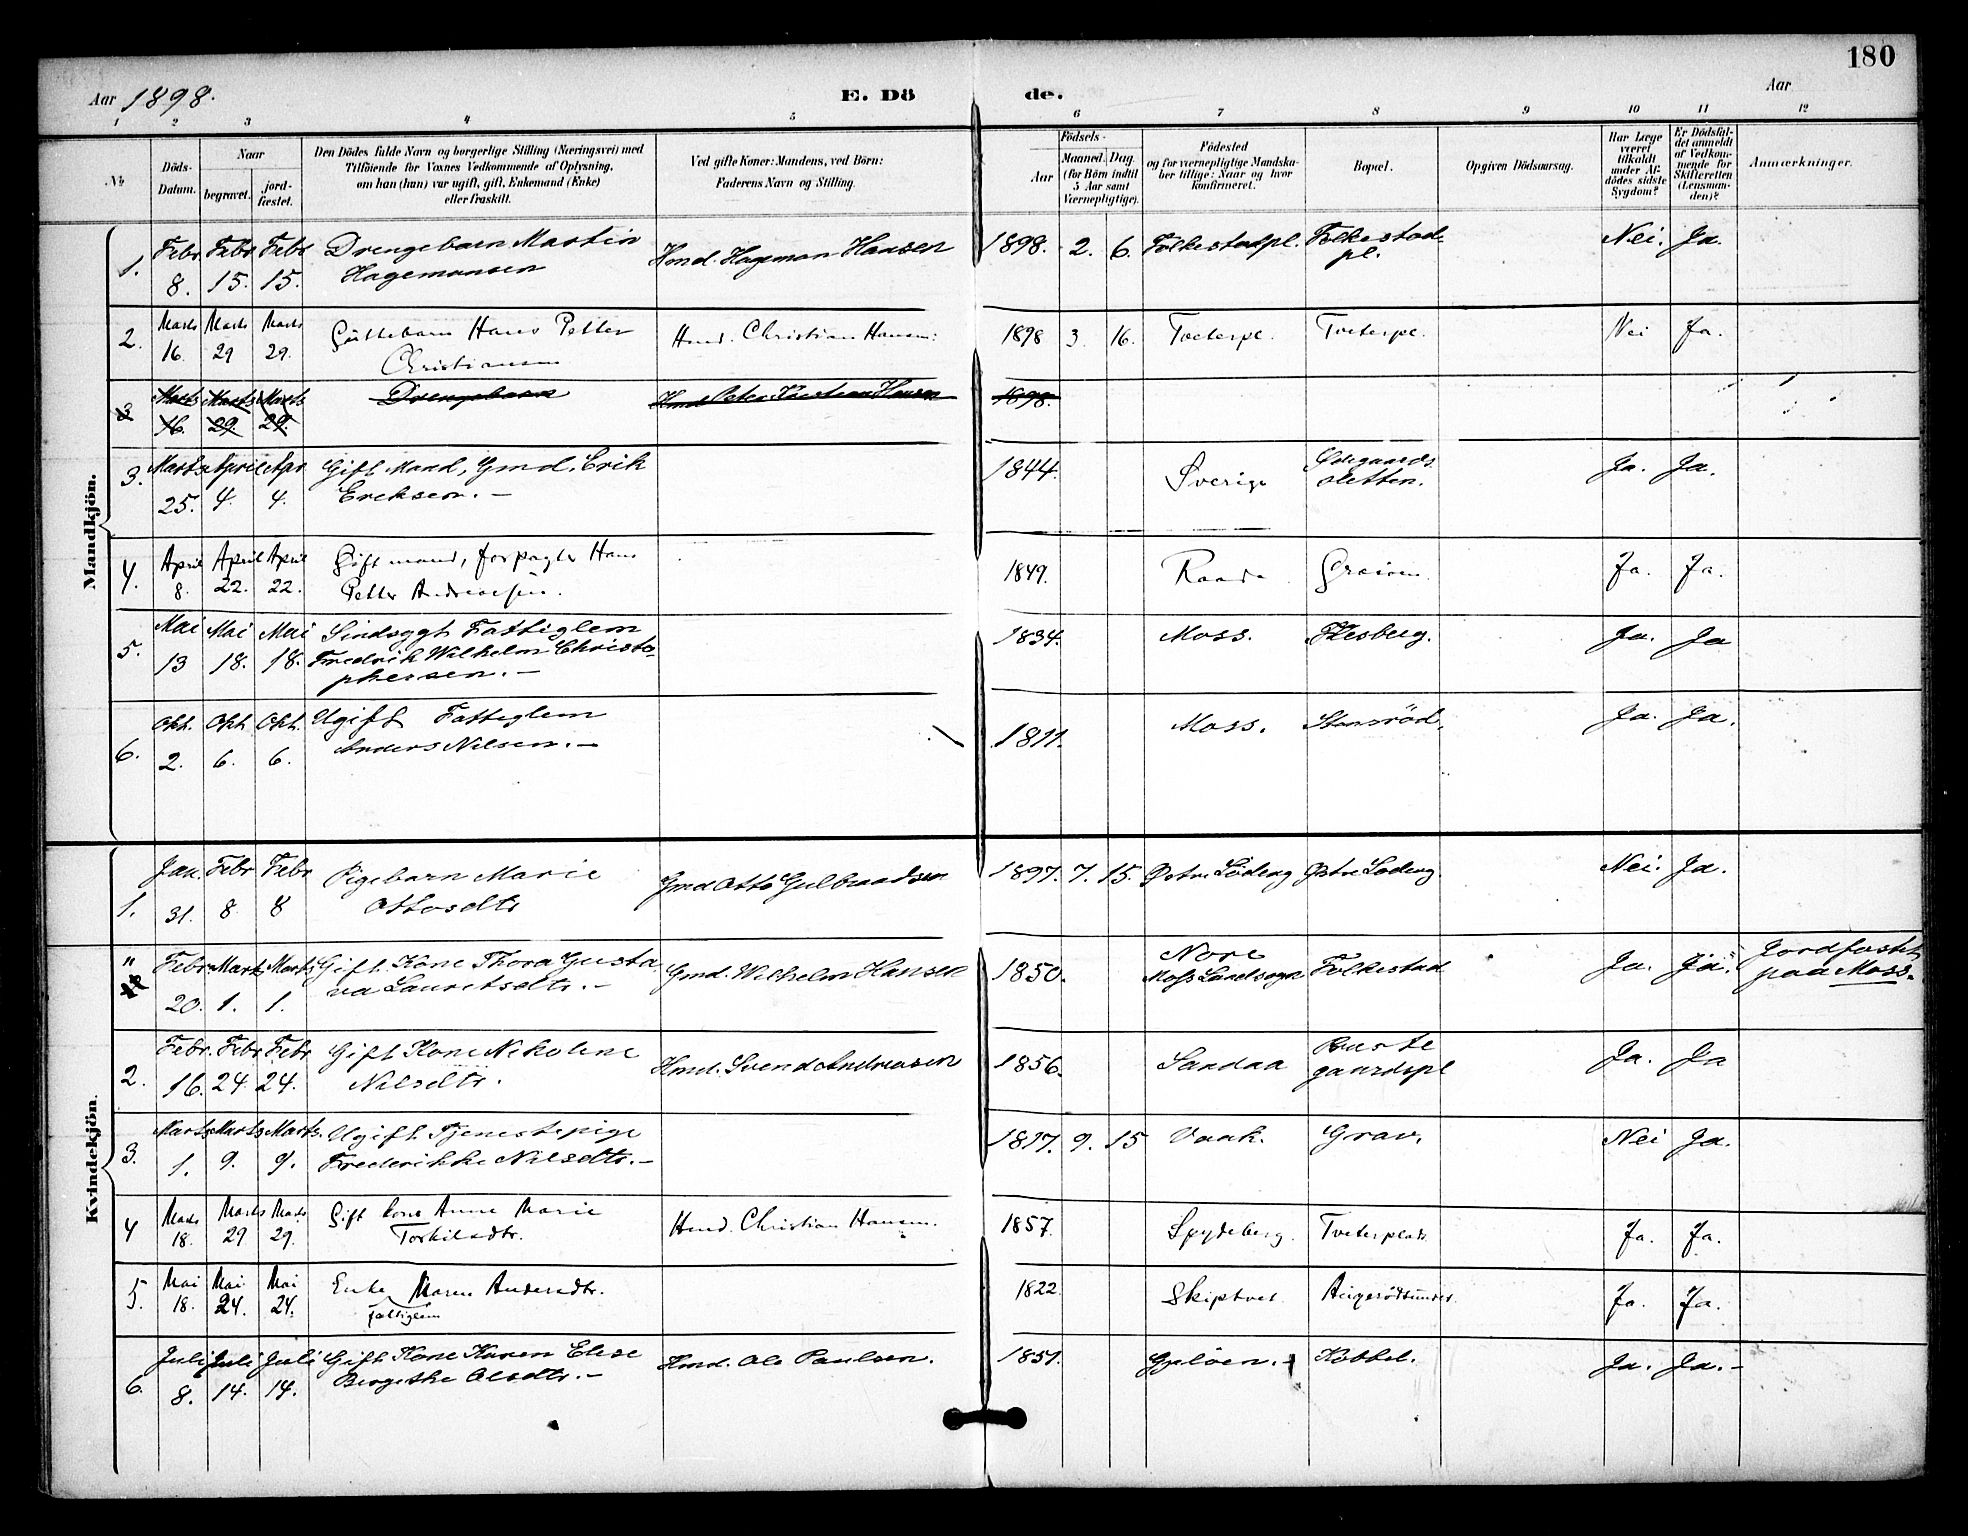 180
Aar 1898.
E. Dö de.
Aar
1 2 3 4 5 6 7 8 9 10 11 12
No
Döds-Datum.
Naar
begravet.
jord-fæstet.
Den Dödes fulde Navn og borgerlige Stilling (Næringsvei) med
Tilföiende for Voxnes Vedkommende af Oplysning,
om han (hun) var ugift, gift, Enkemand (Enke)
eller fraskilt.
Ved gifte Koner: Mandens, ved Börn:
Faderens Navn og Stilling.
Födsels-
Aar
Maaned. Dag.
(for Börn indtil
5 Aar samt
Værnepligtige).
Födested
og for værnepligtige Mandska-
ber tillige: Naar og hvor
konfirmeret.
Bopæl.
Opgiven Dödsaarsag.
Har Læge
været
tilkaldt
under Af-
dödes sidste
Sygdom?
Er Dödsfal-
det anmeldt
af Vedkom-
mende for
Skifteretten
(Lensman-
den)?
Anmærkninger.
Mandkjön.
1. Febr 8. Febr 15. Febr 15. Drengebarn Martin Hagemansen Hmd. Hageman Hansen 1898. 2. 6. Folkestadpl. Folkestad pl. Nei. Ja.
2. Marts 16. Marts 29 Marts 29. Guttebarn Hans Petter Christiansen Hmd. Christian Hansen. 1898 3. 16. Tveterpl. Tveterpl. Nei Ja.
3 Marts 16. Marts 29. Marts 29. Drengebarn Hmd Peter Kristian Hansen 1898.
3. Marts 25. April 4. Apr 4. Gift Mand, Gmd. Erik Eriksen. – 1844. Sverige Ødegaards sletten. Ja. Ja.
4. April 8. April 22. April 22. Gift mand, forpagter Hans Petter Andreassen. 1849. Raade Ja. Ja.
5. Mai 13 Mai 18. Mai 18. Sindsygt Fattiglem Fredrik Wilhelm Christo-phersen. – 1834. Moss. Flesberg. Ja. Ja
6. Okt. 2. Okt 6. Okt. 6. Ugift Fattiglem Anders Nilsen. – 1811. Moss. Stensröd. Ja. Ja.
Kvindekjön.
1. Jan. 31. Febr 8. Febr 8 Pigebarn Marie Ottosdtr Gmd Otto Gulbrandsen 1897. 7. 15. Østre Löderg Østre Löderg. Nei. Ja.
" Febr. 20. Marts 1. Marts 1. Gift Kone Thora Gusta va Lauritsdtr. – Gmd. Wilhelm Hansen 1850. Nore Moss Landsogn Folkestad Ja. Ja. Jordfæstet paa Moss.
2. Febr. 16. Febr 24. Febr 24. Gift Kone Nikoline Nilsdtr. Hmd. Svend Andreasen 1856. Sandaa gaardspl Ja. Ja
3. Marts 1. Marts 9. Marts. 9. Ugift Tjenestepige Frederikke Nilsdtr. – 1817. 9. 15 Vaak. Grav. Nei Ja.
4 Marts 18. Marts 29 Marts 29. Gift kone Anne Marie Torkilsdtr. Hmd. Christian Hansen. 1857. Spydeberg. Tveterplads. Ja. Ja.
5. Mai 18. Mai 24. Mai 24. Enke Maren Andersdtr. fattiglem 1822. Skiptvet. Ja. Ja.
6. Juli 8. Juli 14. Juli 14. Gift Kone Karen Elise Bergithe Olsdtr. – Hmd. Ole Paulsen. 1851. Gjelöen. – Kobbel. Ja. Ja. –